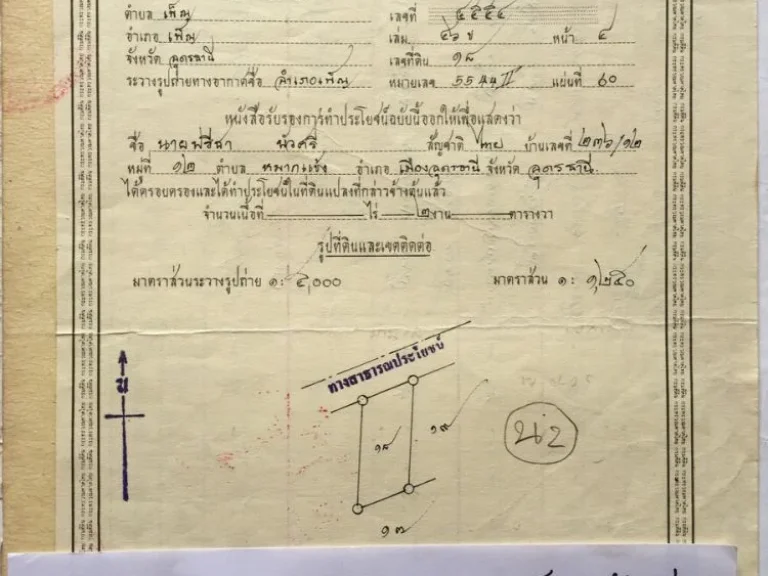 ตำบล เพ็ญ เลขที่ ๔๕๕๔
อำเภอ เพ็ญ เล่ม ๔๖ ข หน้า ๔
จังหวัด อุดรธานี เลขที่ดิน ๑๘
ระวางรูปถ่ายทางอากาศชื่อ อำเภอเพ็ญ หมายเลข 5544 II แผ่นที่ ๖๐
หนังสือรับรองการทำประโยชน์ฉบับนี้ออกให้เพื่อแสดงว่า
ชื่อ นายปรีชา บัวศรี สัญชาติ ไทย บ้านเลขที่ ๒๓๖/๑๒
หมู่ที่ ๑๒ ตำบล หมากแข้ง อำเภอ เมืองอุดรธานี จังหวัด อุดรธานี
ได้ครอบครองและได้ทำประโยชน์ในที่ดินแปลงที่กล่าวข้างต้นแล้ว
จำนวนเนื้อที่ ไร่ ๒ งาน ตารางวา
รูปที่ดินและเขตติดต่อ
มาตราส่วนระวางรูปถ่าย ๑: ๕,๐๐๐ มาตราส่วน ๑: ๑,๒๕๐
ทางสาธารณประโยชน์
น
๑๘
๑๙
๑๗